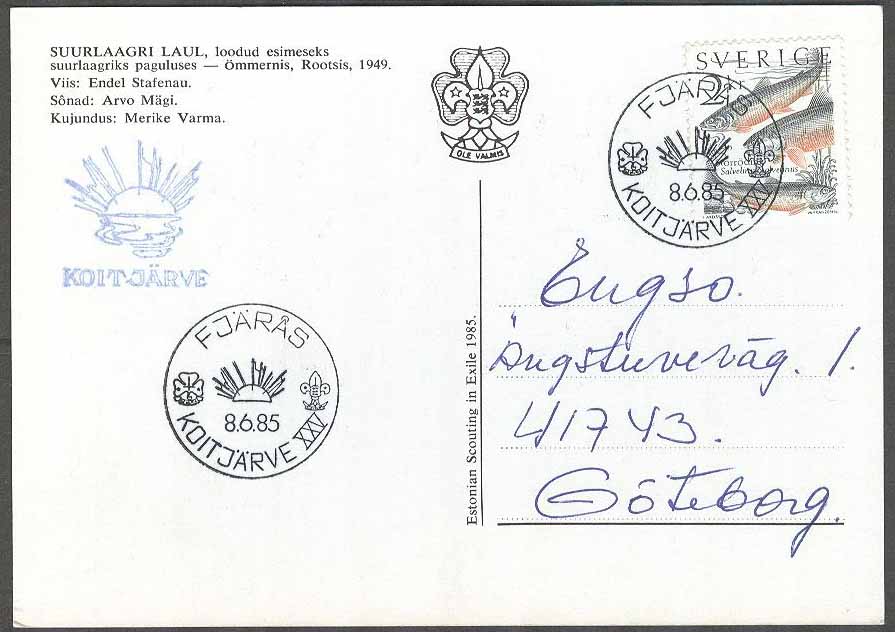 SUURLAAGRI LAUL, loodud esimeseks
suurlaagriks paguluses — Ömmernis, Rootsis, 1949.
Viis: Endel Stafenau.
Sõnad: Arvo Mägi.
Kujundus: Merike Varma.
OLE VALMIS
SVERIGE
2
Salvelinus
FJÄRÅS
8.6.85
KOITJÄRVE XXV
KOIT-JÄRVE
FJÄRÅS
8.6.85
KOITJÄRVE XXV
Estonian Scouting in Exile 1985.
Engso.
Ängstuveväg. 1.
41743.
Göteborg.